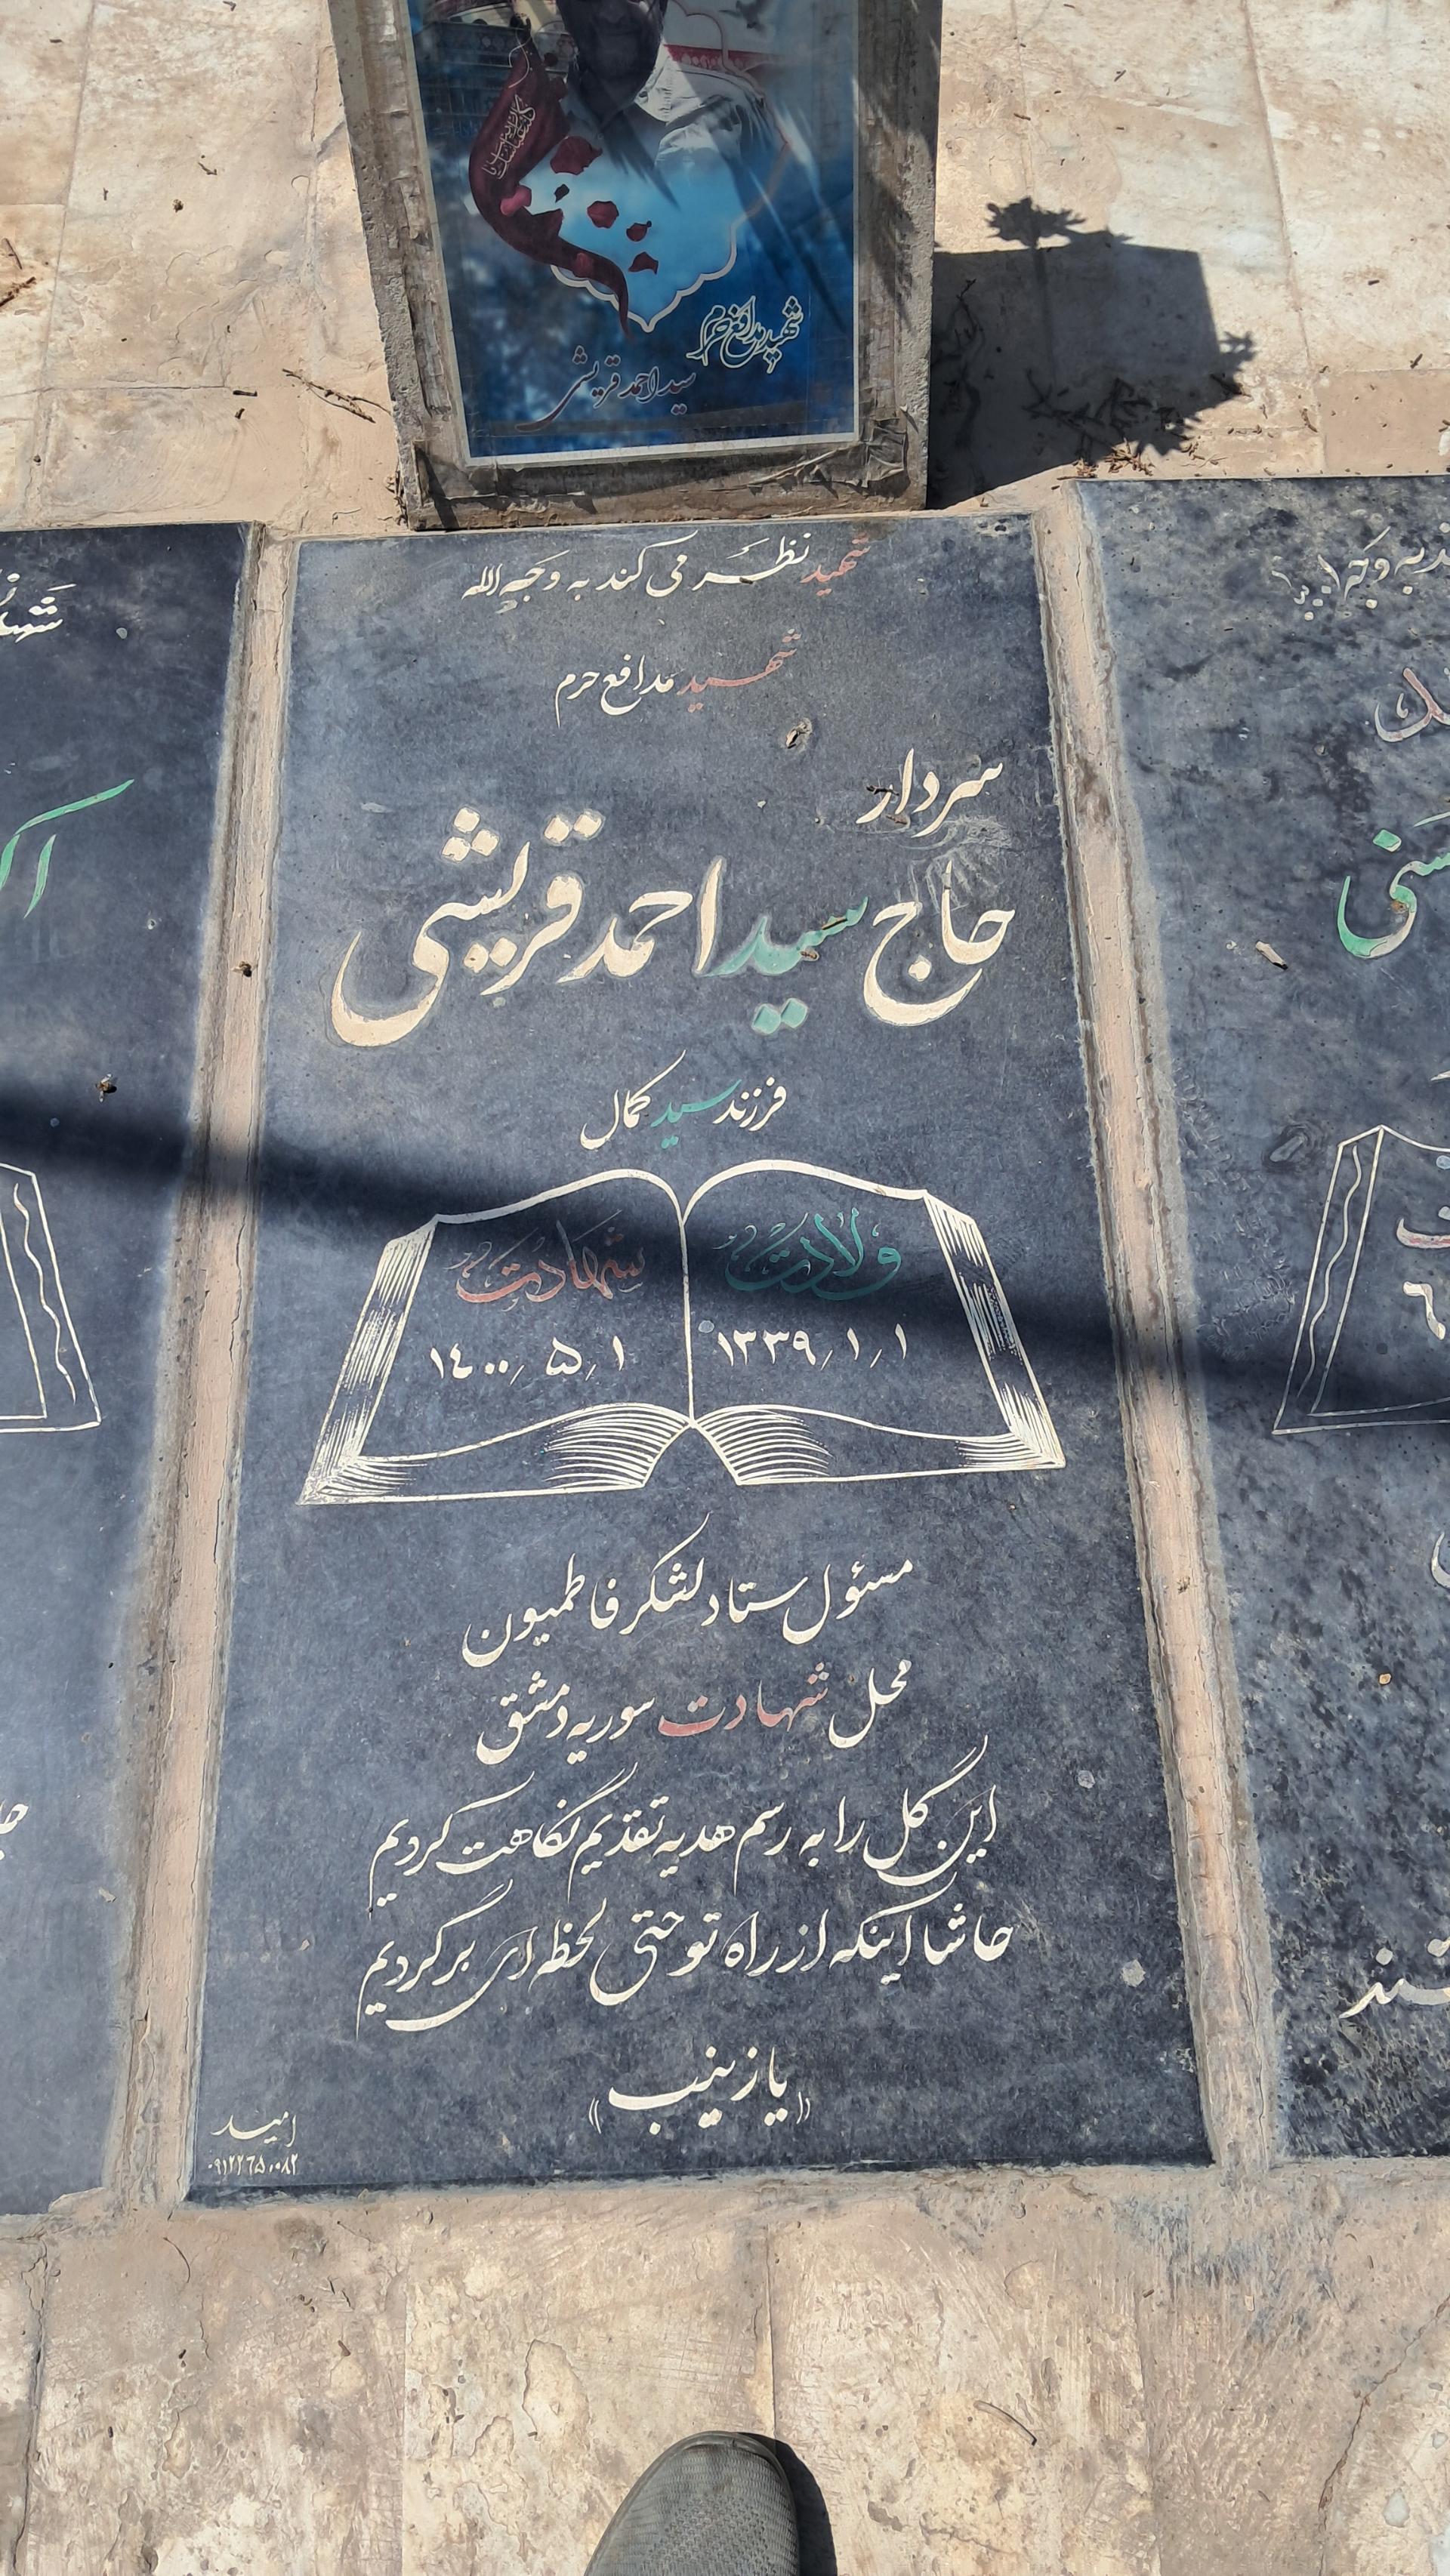 شهید مدافع حرم
سید احمد قریشی
شهید نظر می کند به وجه الله
شهید مدافع حرم
سردار
حاج سید احمد قریشی
فرزند سید کمال
ولادت
۱۳۳۹/۱/۱
شهادت
۱٤۰۰/۵/۱
مسئول ستاد لشکر فاطمیون
محل شهادت سوریه دمشق
این گل را به رسم هدیه تقدیم نگاهت کردیم
حاشا اینکه از راه تو حتی لحظه ای برگردیم
«یا زینب»
امید
۰۹۱۲۲٦۵۰۰۸۲